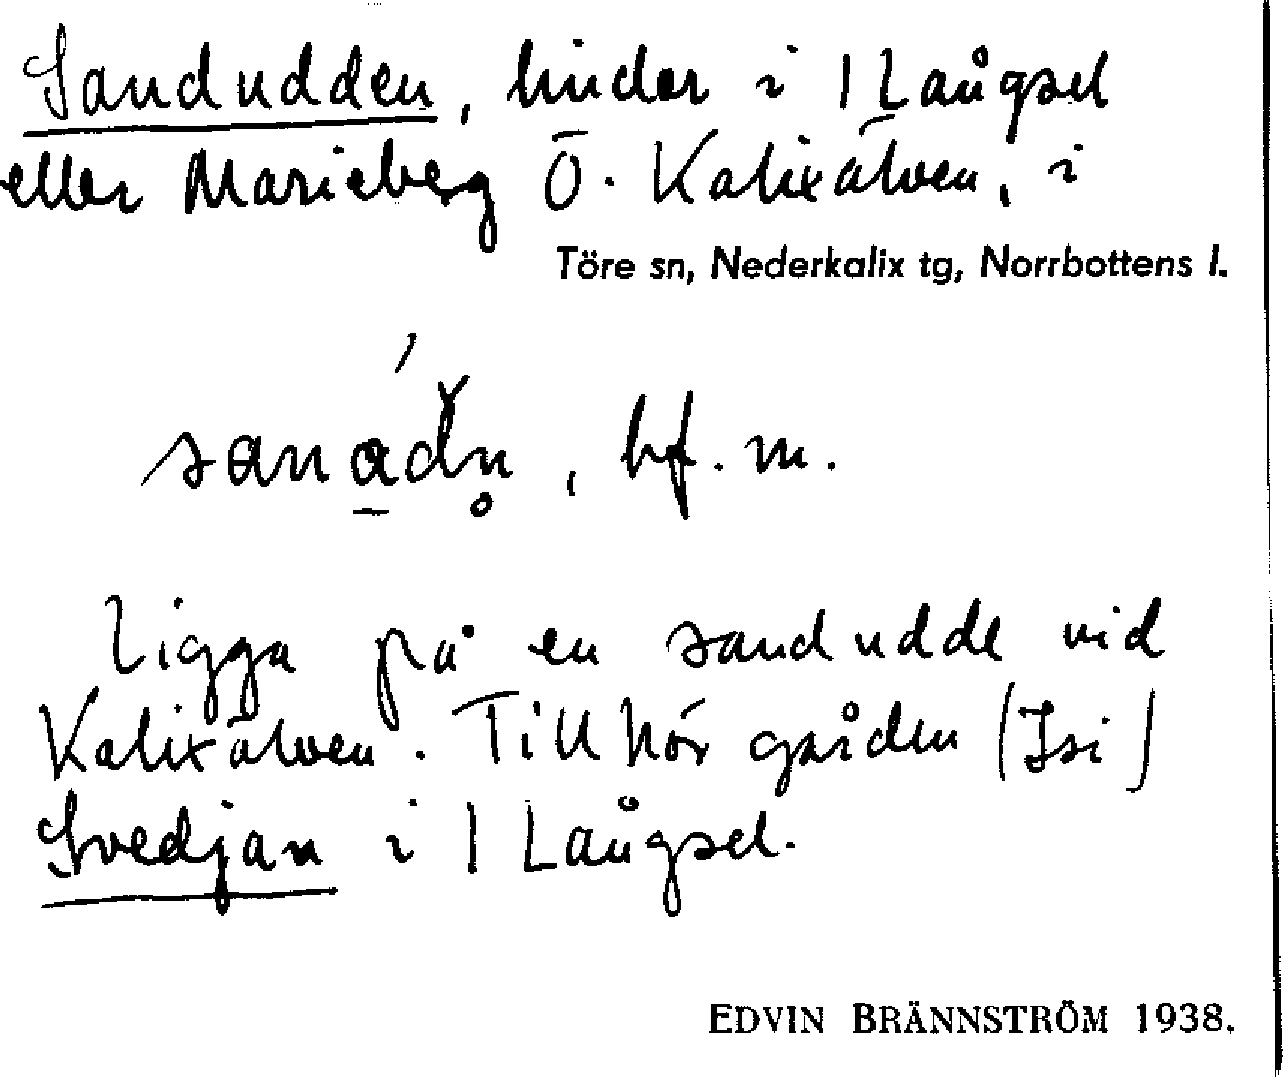 Sandudden, linder i 1 Långsel
eller Marieberg Ö. Kalixälven, i
Töre sn, Nederkalix tg, Norrbottens l.
bf. m.
Ligga på en sandudde vid
Kalixälven. Tillhör gården (Isi)
Svedjan i 1 Långsel.
EDVIN BRÄNNSTRÖM 1938.